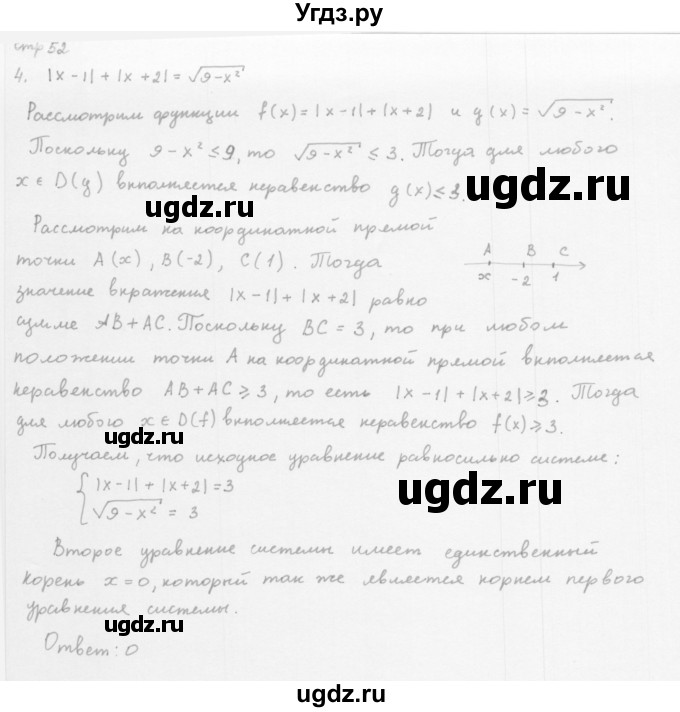 Угдз.ру
стр 52
4. |x-1| + |x+2| = √9-x²
Рассмотрим функции f(x) = |x-1| + |x+2| и g(x) = √9-x².
Поскольку 9-x² ≤ 9, то √9-x² ≤ 3. Тогда для любого
x ∈ D(g) выполняется неравенство g(x) ≤ 3.
ugdz.ru
ugdz.ru
Рассмотрим на координатной прямой
точки A(x), B(-2), C(1). Тогда
A B C
x -2 1
значение выражения |x-1| + |x+2| равно
сумме AB+AC. Поскольку BC = 3, то при любом
положении точки A на координатной прямой выполняется
неравенство AB+AC ≥ 3, то есть |x-1| + |x+2| ≥ 3. Тогда
для любого x ∈ D(f) выполняется неравенство f(x) ≥ 3.
ugdz.ru
Получаем, что исходное уравнение равносильно системе:
{ |x-1| + |x+2| = 3
√9-x² = 3
ugdz.ru
Второе уравнение системы имеет единственный
корень x = 0, который так же является корнем первого
уравнения системы.
ugdz.ru
Ответ: 0
ugdz.ru